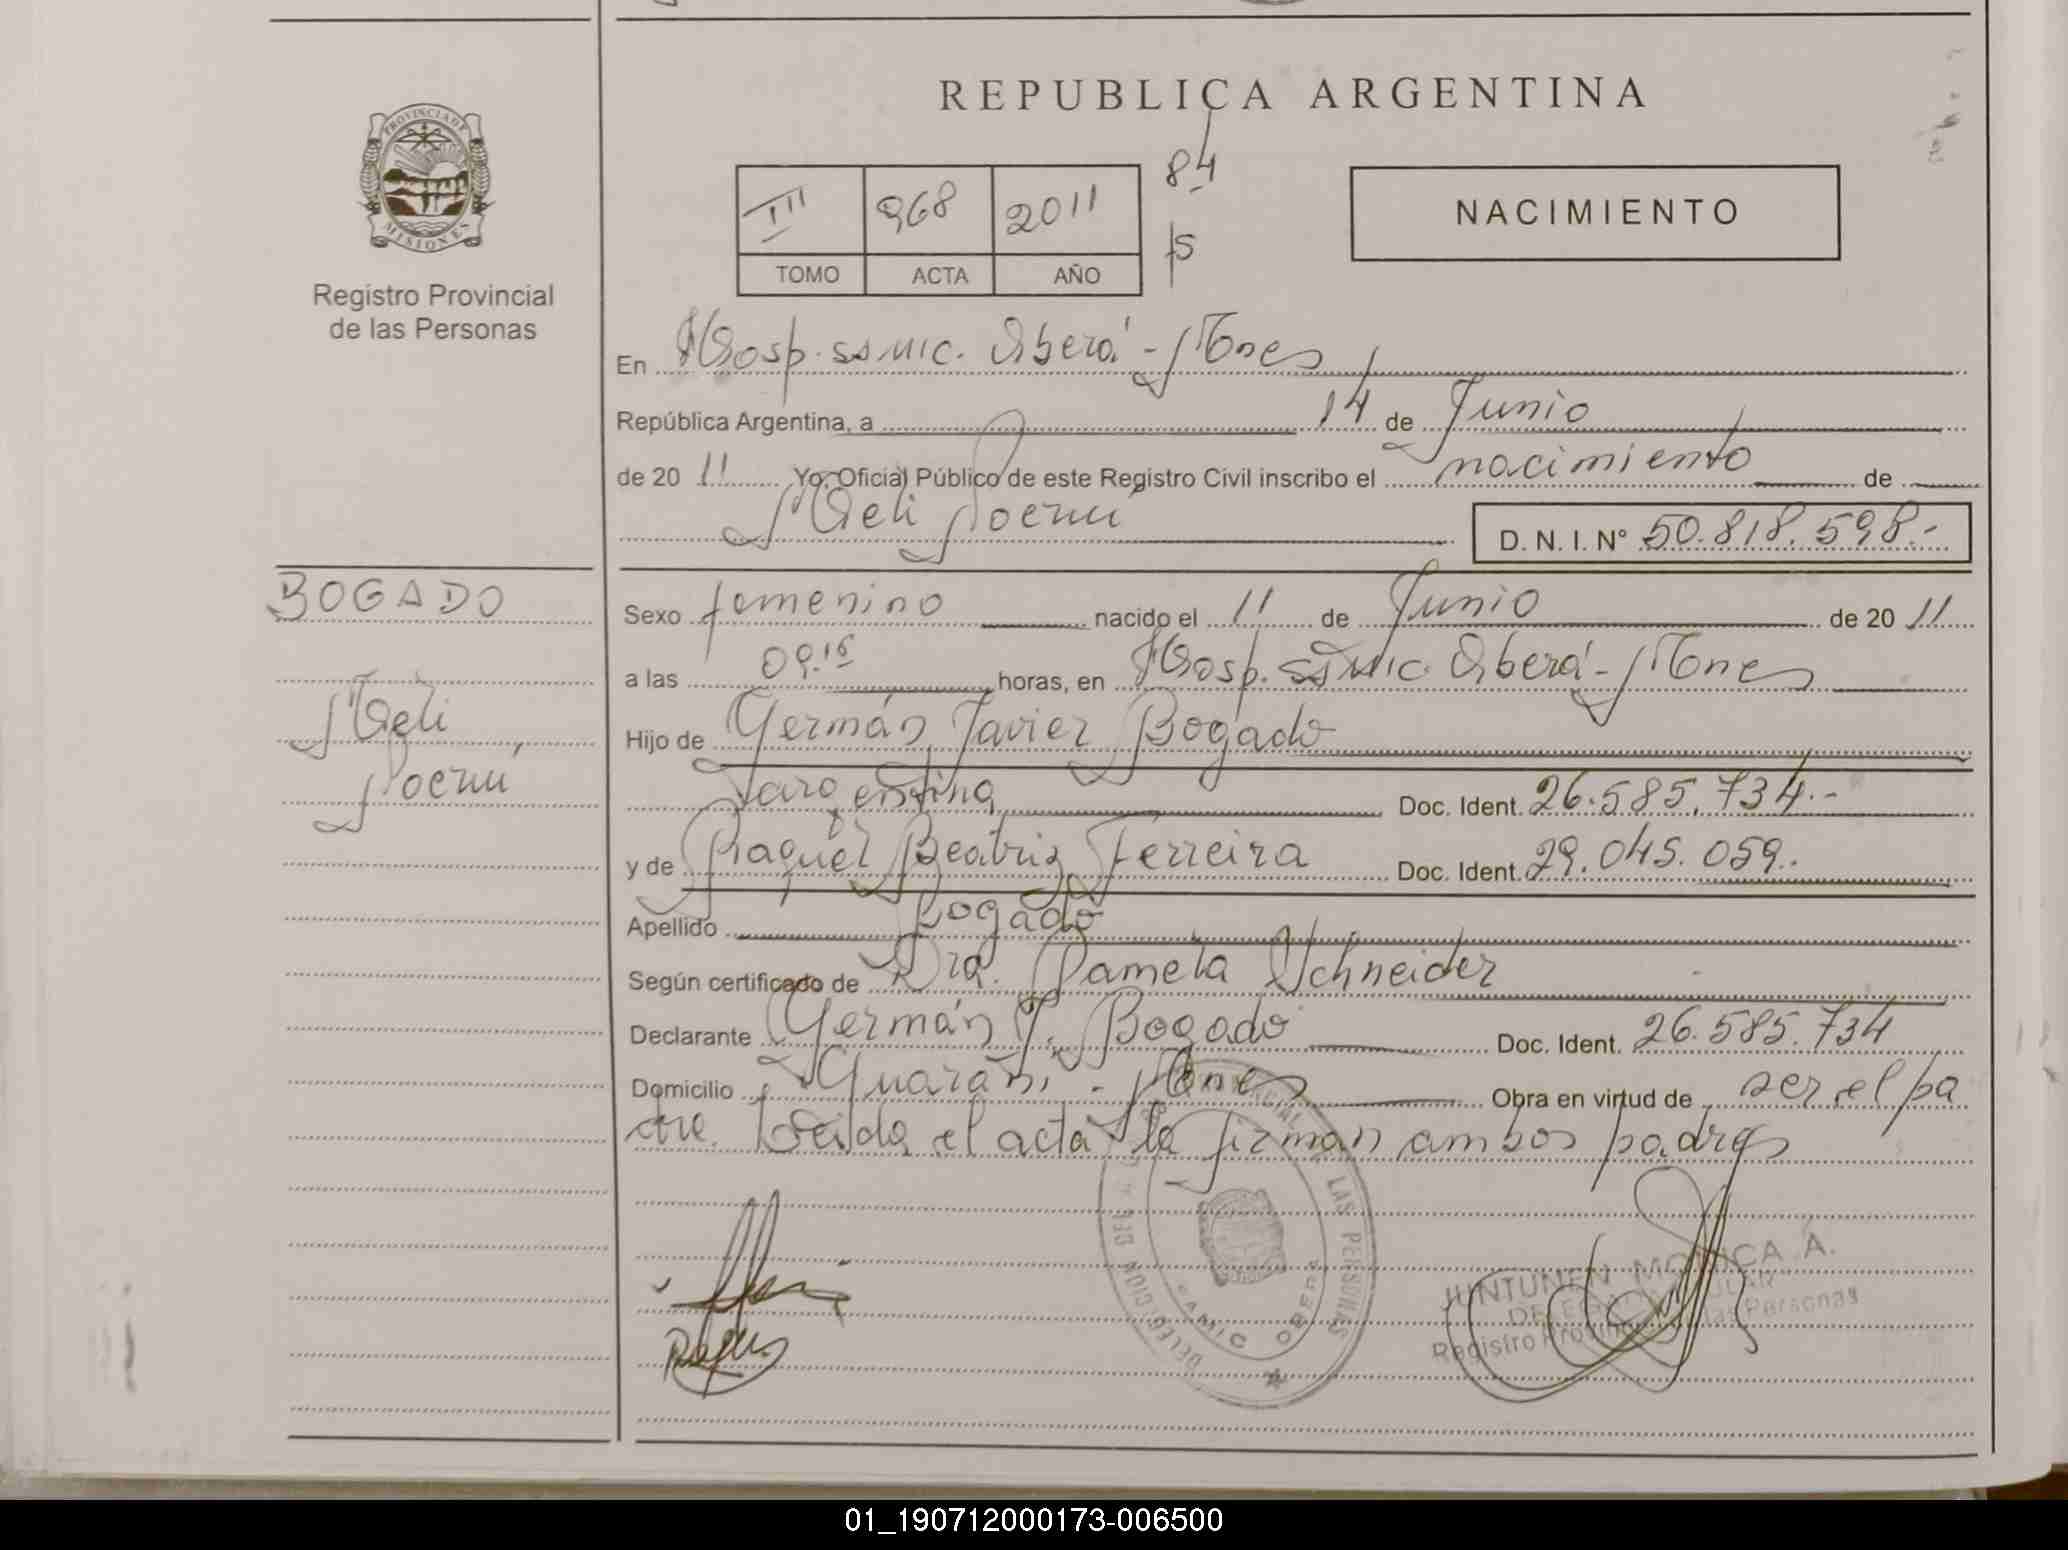 REPUBLICA ARGENTINA
PROVINCIA DE
MISIONES
Registro Provincial
de las Personas
III 968 2011
TOMO ACTA AÑO
84
NACIMIENTO
En Hosp. SSMIC. Oberá - Mnes
República Argentina, a 14 de Junio
de 2011 Yo, Oficial Público de este Registro Civil inscribo el nacimiento de
Noemí
D. N. I. Nº 50.818.598.-
BOGADO
Noemí
Sexo femenino nacido el 11 de Junio de 2011
a las 09.15 horas, en Hosp. SSMIC. Oberá - Mnes
Hijo de Germán Javier Bogado
argentina Doc. Ident. 26.585.734.-
y de Raquel Beatriz Ferreira Doc. Ident. 29.045.059.-
Apellido Bogado
Según certificado de Dra. Pamela Schneider
Declarante Germán J. Bogado Doc. Ident. 26.585.734
Domicilio Guaraní - Mnes Obra en virtud de ser el pa
dre. Leida el acta la firman ambos padres
LAS PERSONAS
SAMIC OBERA
JUNTUNEN MONICA A.
Registro Provincial de las Personas
01_190712000173-006500